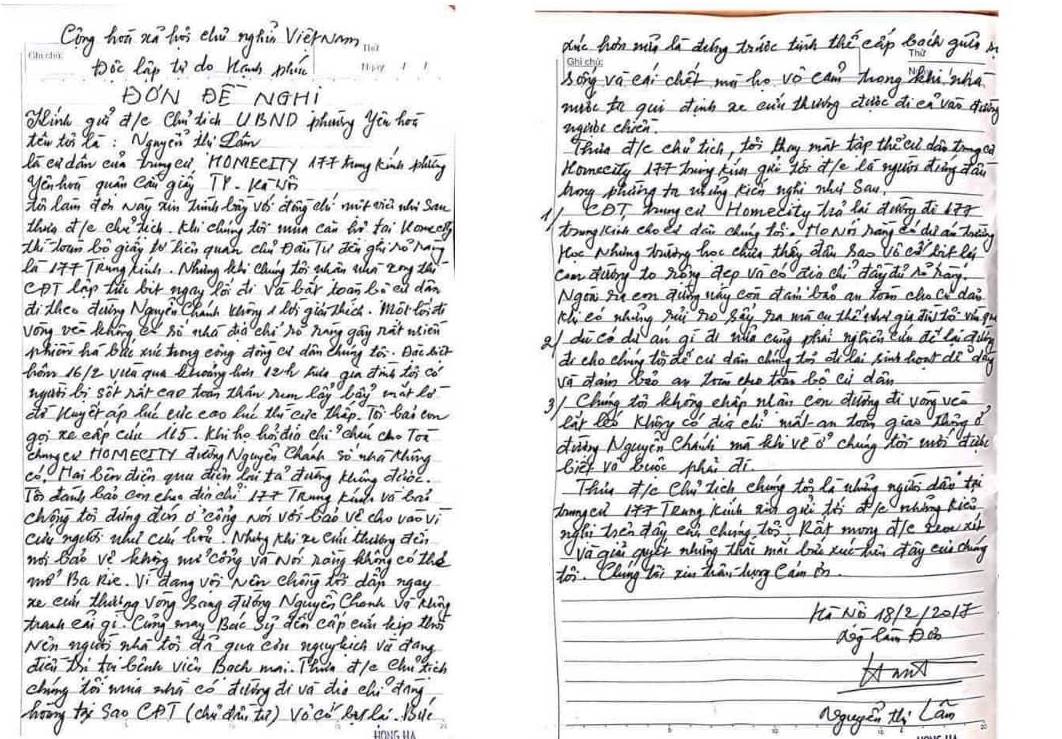 Cộng hoà xả hội chủ nghĩa Việt Nam
Ghi chú:
Thứ
Độc lập tự do Hạnh phúc
Ngày / /
ĐƠN ĐỀ NGHỊ
Kính gửi đ/c Chủ tịch UBND phường Yên hoà
tên tôi là : Nguyễn thị Lân
là cư dân của trung cư HOMECITY 177 trung Kính phường
Yên hoà quân Cầu giấy TP - Hà Nôi
tôi làm đơn này xin trình bầy với đồng chí một viêc như sau
thưa đ/c chủ tịch. Khi chúng tôi mua căn hô tai Homecity
thì toàn bô giấy tờ liên quan chủ Đầu Tư đều ghi rõ ràng
là 177 Trung Kính. Nhưng khi chúng tôi nhân nhà xong thì
CĐT lập tức bit ngay lối đi và bắt toàn bô cư dân
đi theo đường Nguyễn Chánh không 1 lời giải thích. Một lối đi
vòng vèo không có số nhà địa chỉ rõ ràng gây rất nhiều
phiền hà bức xúc trong công đồng cư dân chúng tôi. Đăc biêt
hôm 16/2 vừa qua khoảng hơn 12h trưa gia đình tôi có
người bị sốt rất cao toàn thân run lẩy bẩy mắt lờ
đờ Huyết áp lúc cực cao lúc thì cực thấp. Tôi bảo con
gọi xe cấp cứu 115. Khi họ hỏi địa chỉ cháu cho Toà
chung cư HOMECITY đường Nguyễn Chánh Số nhà không
có. Hai bên điên qua điên lại tả đường không được.
Tôi đành bảo con cho địa chỉ 177 Trung Kính và bảo
chồng tôi đứng đón ở cổng nói với bảo vê cho vào vì
cứu người như cứu hoả. Nhưng khi xe cứu thương đến
nơi bảo vê không mở cổng và nói rằng không có thẻ
mở Ba Rie. Vì đang vôi nên chồng tôi dẫn ngay
xe cứu thương vòng sang đường Nguyễn Chanh và không
tranh cãi gì. Cũng may Bác Sỹ đến cấp cứu kip thời
nên người nhà tôi đã qua cơn nguy kich và đang
điều tri tại bênh viên Bach mai. Thưa đ/c Chủ tich
chúng tôi mua nhà có đường đi và địa chỉ đàng
hoàng tại Sao CĐT (chủ đầu tư) vô cớ bịt lại. Bức
HONG HA
xúc hơn nữa là đứng trước tình thế cấp bách giữa sự
Ghi chú:
Thứ
sống và cái chết mà họ vô cảm trong khi nhà
nước ta qui định xe cứu thương được đi cả vào đường
ngược chiều.
Thưa đ/c chủ tich, tôi thay măt tập thể cư dân trung cư
Homecity 177 trung kính gửi tới đ/c là người đứng đầu
trong phường ta những kiến nghi như Sau.
1/ CĐT, trung cư Homecity trả lai đường đi 177
trung Kính cho cư dân chúng tôi. Ho Nói rằng có dự án trường
Hoc Nhưng trường học chưa thấy đâu sao vô cớ bịt lối
con đường to rông đẹp và có địa chỉ đầy đủ rõ ràng.
Ngoài ra con đường này còn đảm bảo an toàn cho cư dân
khi có những rủi ro xẩy ra mà cu thể như gia đình tôi vừa qua
2/ dù có dự án gì đi nữa cũng phải nghiên cứu để lai đường
đi cho chúng tôi để cư dân chúng tôi đi lai sinh hoạt dễ dàng
và đảm bảo an toàn cho toàn bộ cư dân
3/ Chúng tôi không chấp nhân con đường đi vòng vèo
lắt léo không có địa chỉ mất an toàn giao thông ở
đường Nguyễn Chánh mà khi về ở chúng tôi mới được
biết và buôc phải đi.
Thưa đ/c chủ tich chúng tôi là những người dân tại
trung cư 177 Trung Kính xin gửi tới đ/c những kiến
nghi trên đây của chúng tôi. Rất mong đ/c xem xét
và giải quyết những thắc mắc bức xúc trên đây của chúng
tôi. Chúng tôi xin trân trọng Cảm ơn.
Hà Nôi 18/2/2017
Người làm Đơn
Nguyễn thị Lân
HONG HA